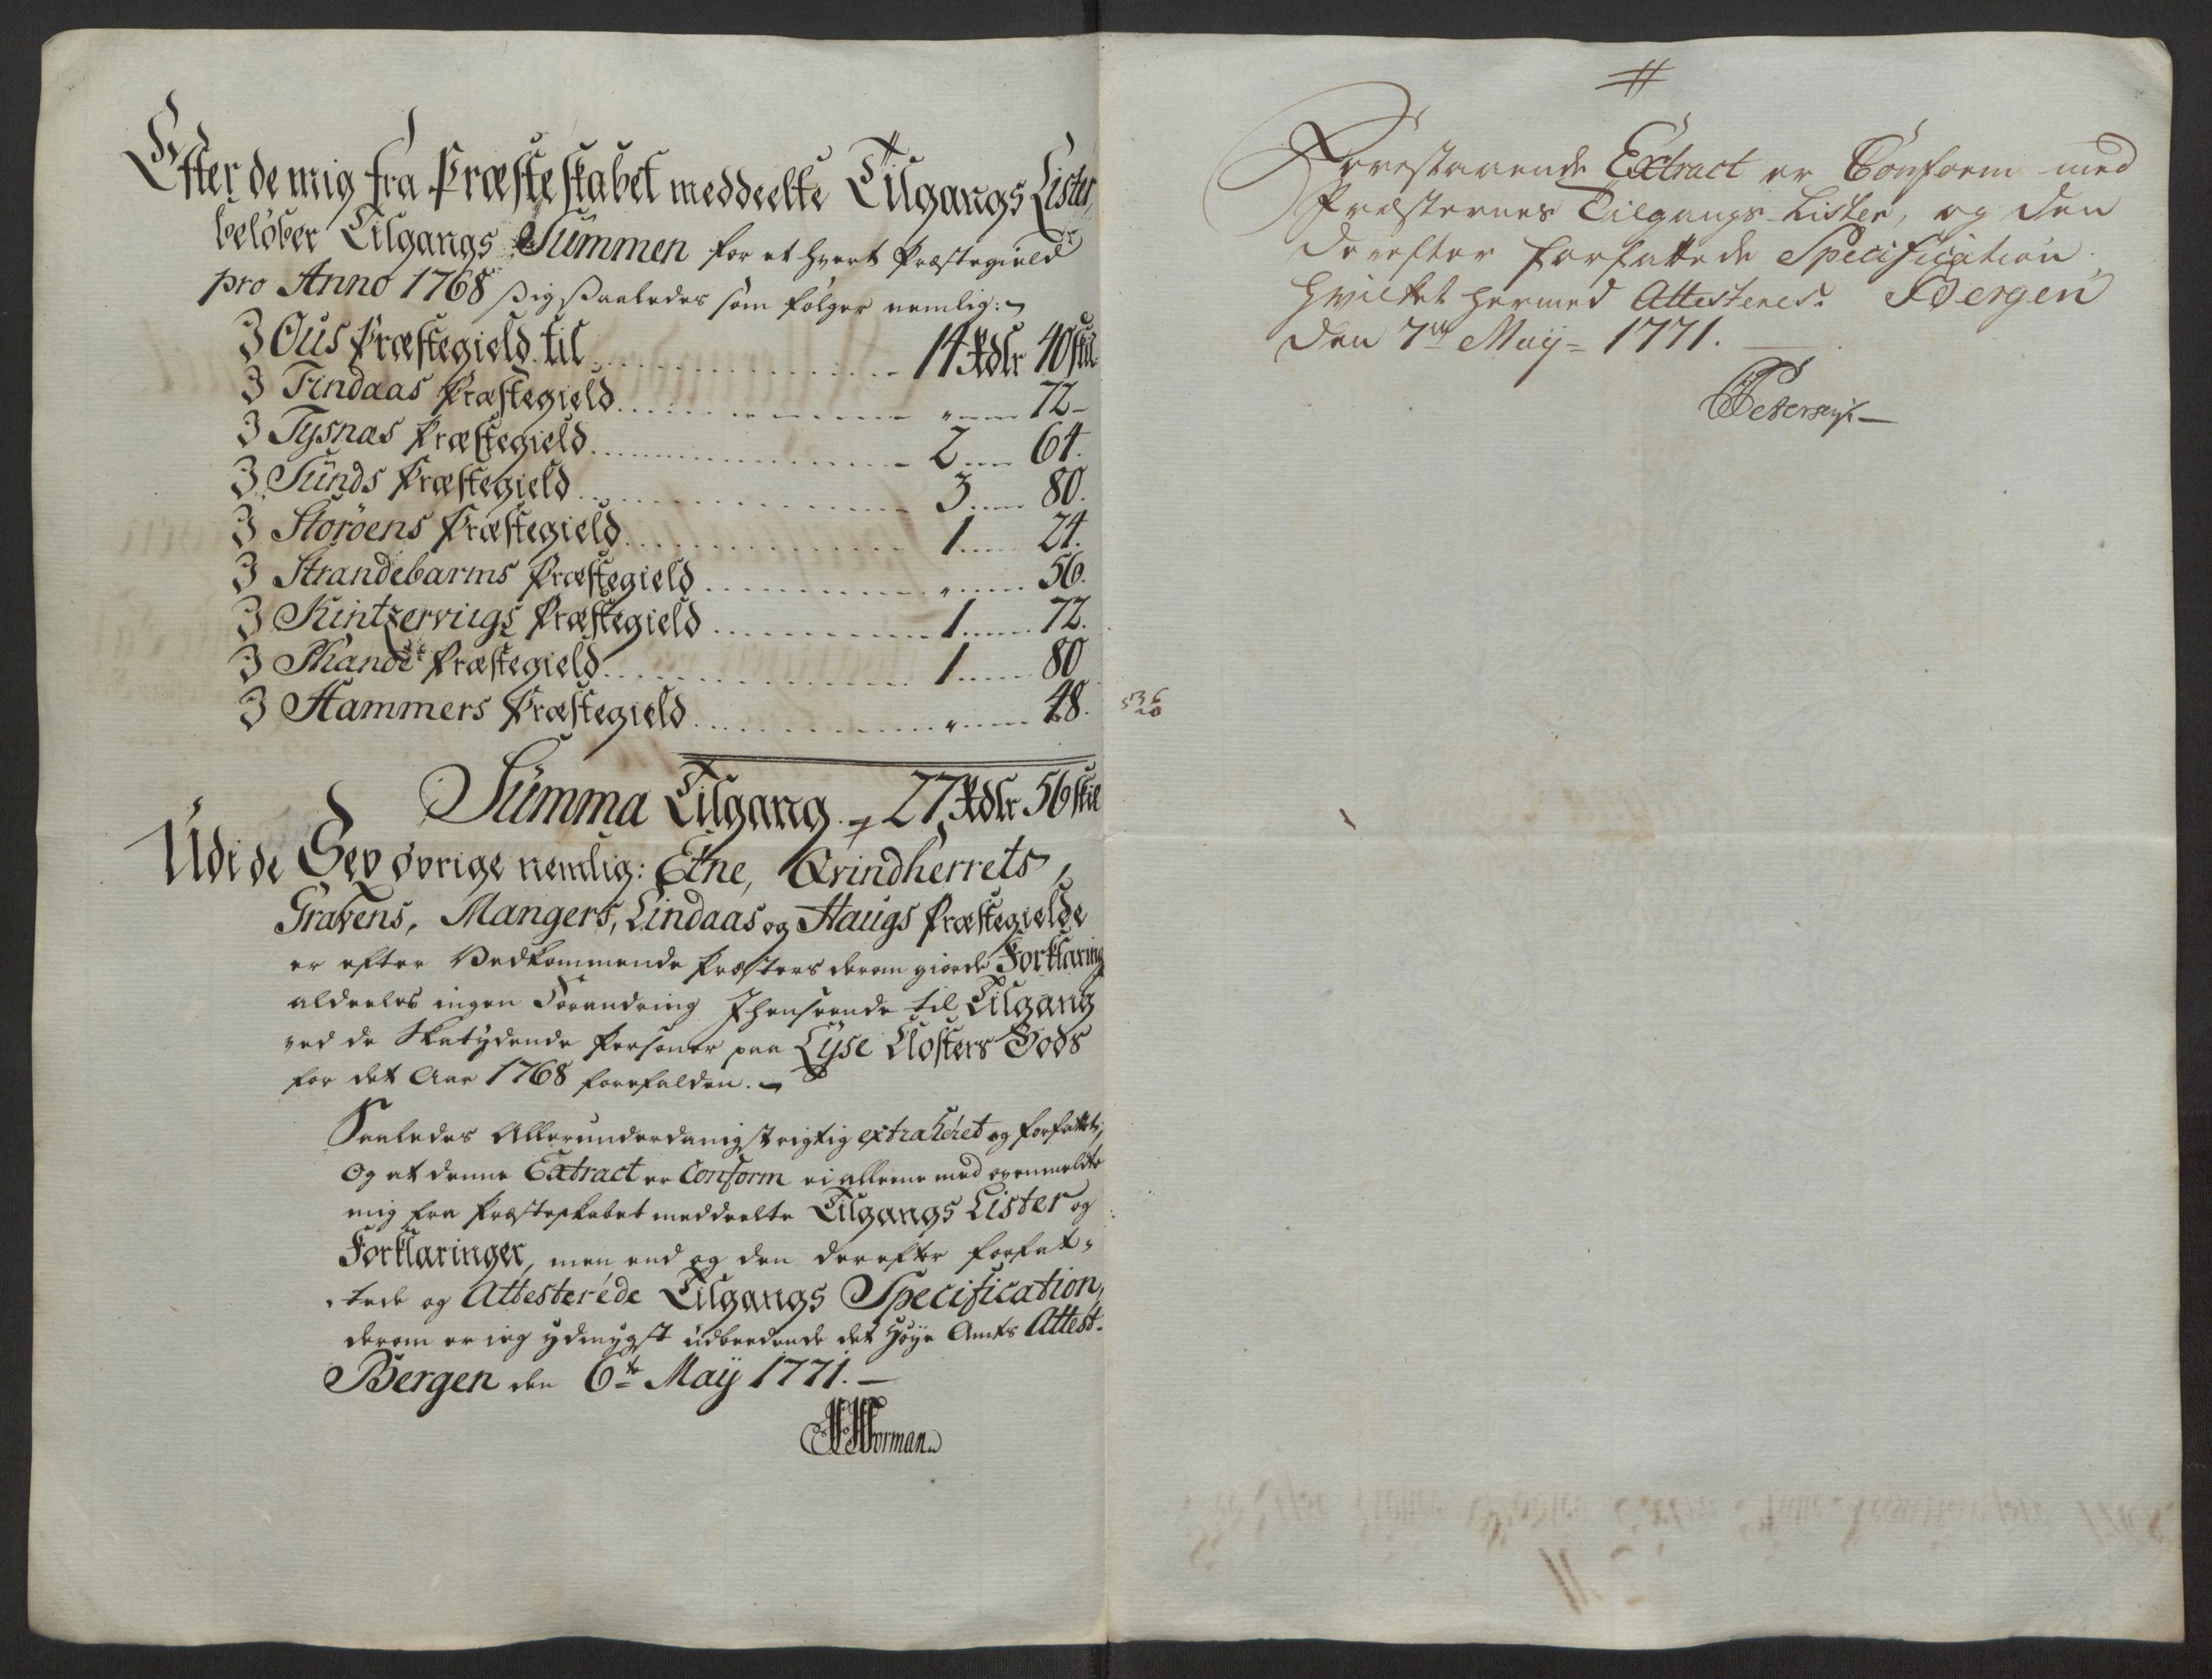 Efter de mig fra Præsteskabet meddeelte Tilgangs Lister,
beløber Tilgangs Summen for et hvert Præstegield
pro Anno 1768 sig saaledes som følger nemlig:
I Ous Præstegield til 14 Rdlr 40 skil
I Findaas Præstegield " 72
I Tysnæs Præstegield 2 64.
I Sunds Præstegield 3 80.
I Storøens Præstegield 1 24.
I Strandebarms Præstegield " 56.
I Kintzerviigs Præstegield 1 72.
I Skande Præstegield 1 80
I Hammers Præstegield " 48.
Summa Tilgang 27 Rdlr 56 skil
Udi de Sex øvrige nemlig: Etne, Qvindherrets,
Gravens, Mangers, Lindaas og Haugs Præstegielde
er efter Vedkommende Præsters derom giorde Forklaring
aldeeles ingen Forandring Ihenseende til Tilgang
ved de Skatydende Personer paa Lyse Closters Gods
for det Aar 1768 forefalden.
Saaledes Allerunderdanigst rigtig extraheret og forfattet,
Og at denne Extract er Conform ei alleene med ovenmeldte
mig fra Præsteskabet meddeelte Tilgangs Lister og
Forklaringer, men end og den derefter forfat-
tede og Attesterede Tilgangs Specification,
derom er ieg ydmygst udbeedende det Høye Amts Attest.
Bergen den 6te Maij 1771.
Horman
Forestaaende Extract er Conform med
Præsternes Tilgangs-Lister, og den
derefter forfattede Specification
hvilket hermed Attesteres. Bergen
den 7de Maij 1771.
Petersen